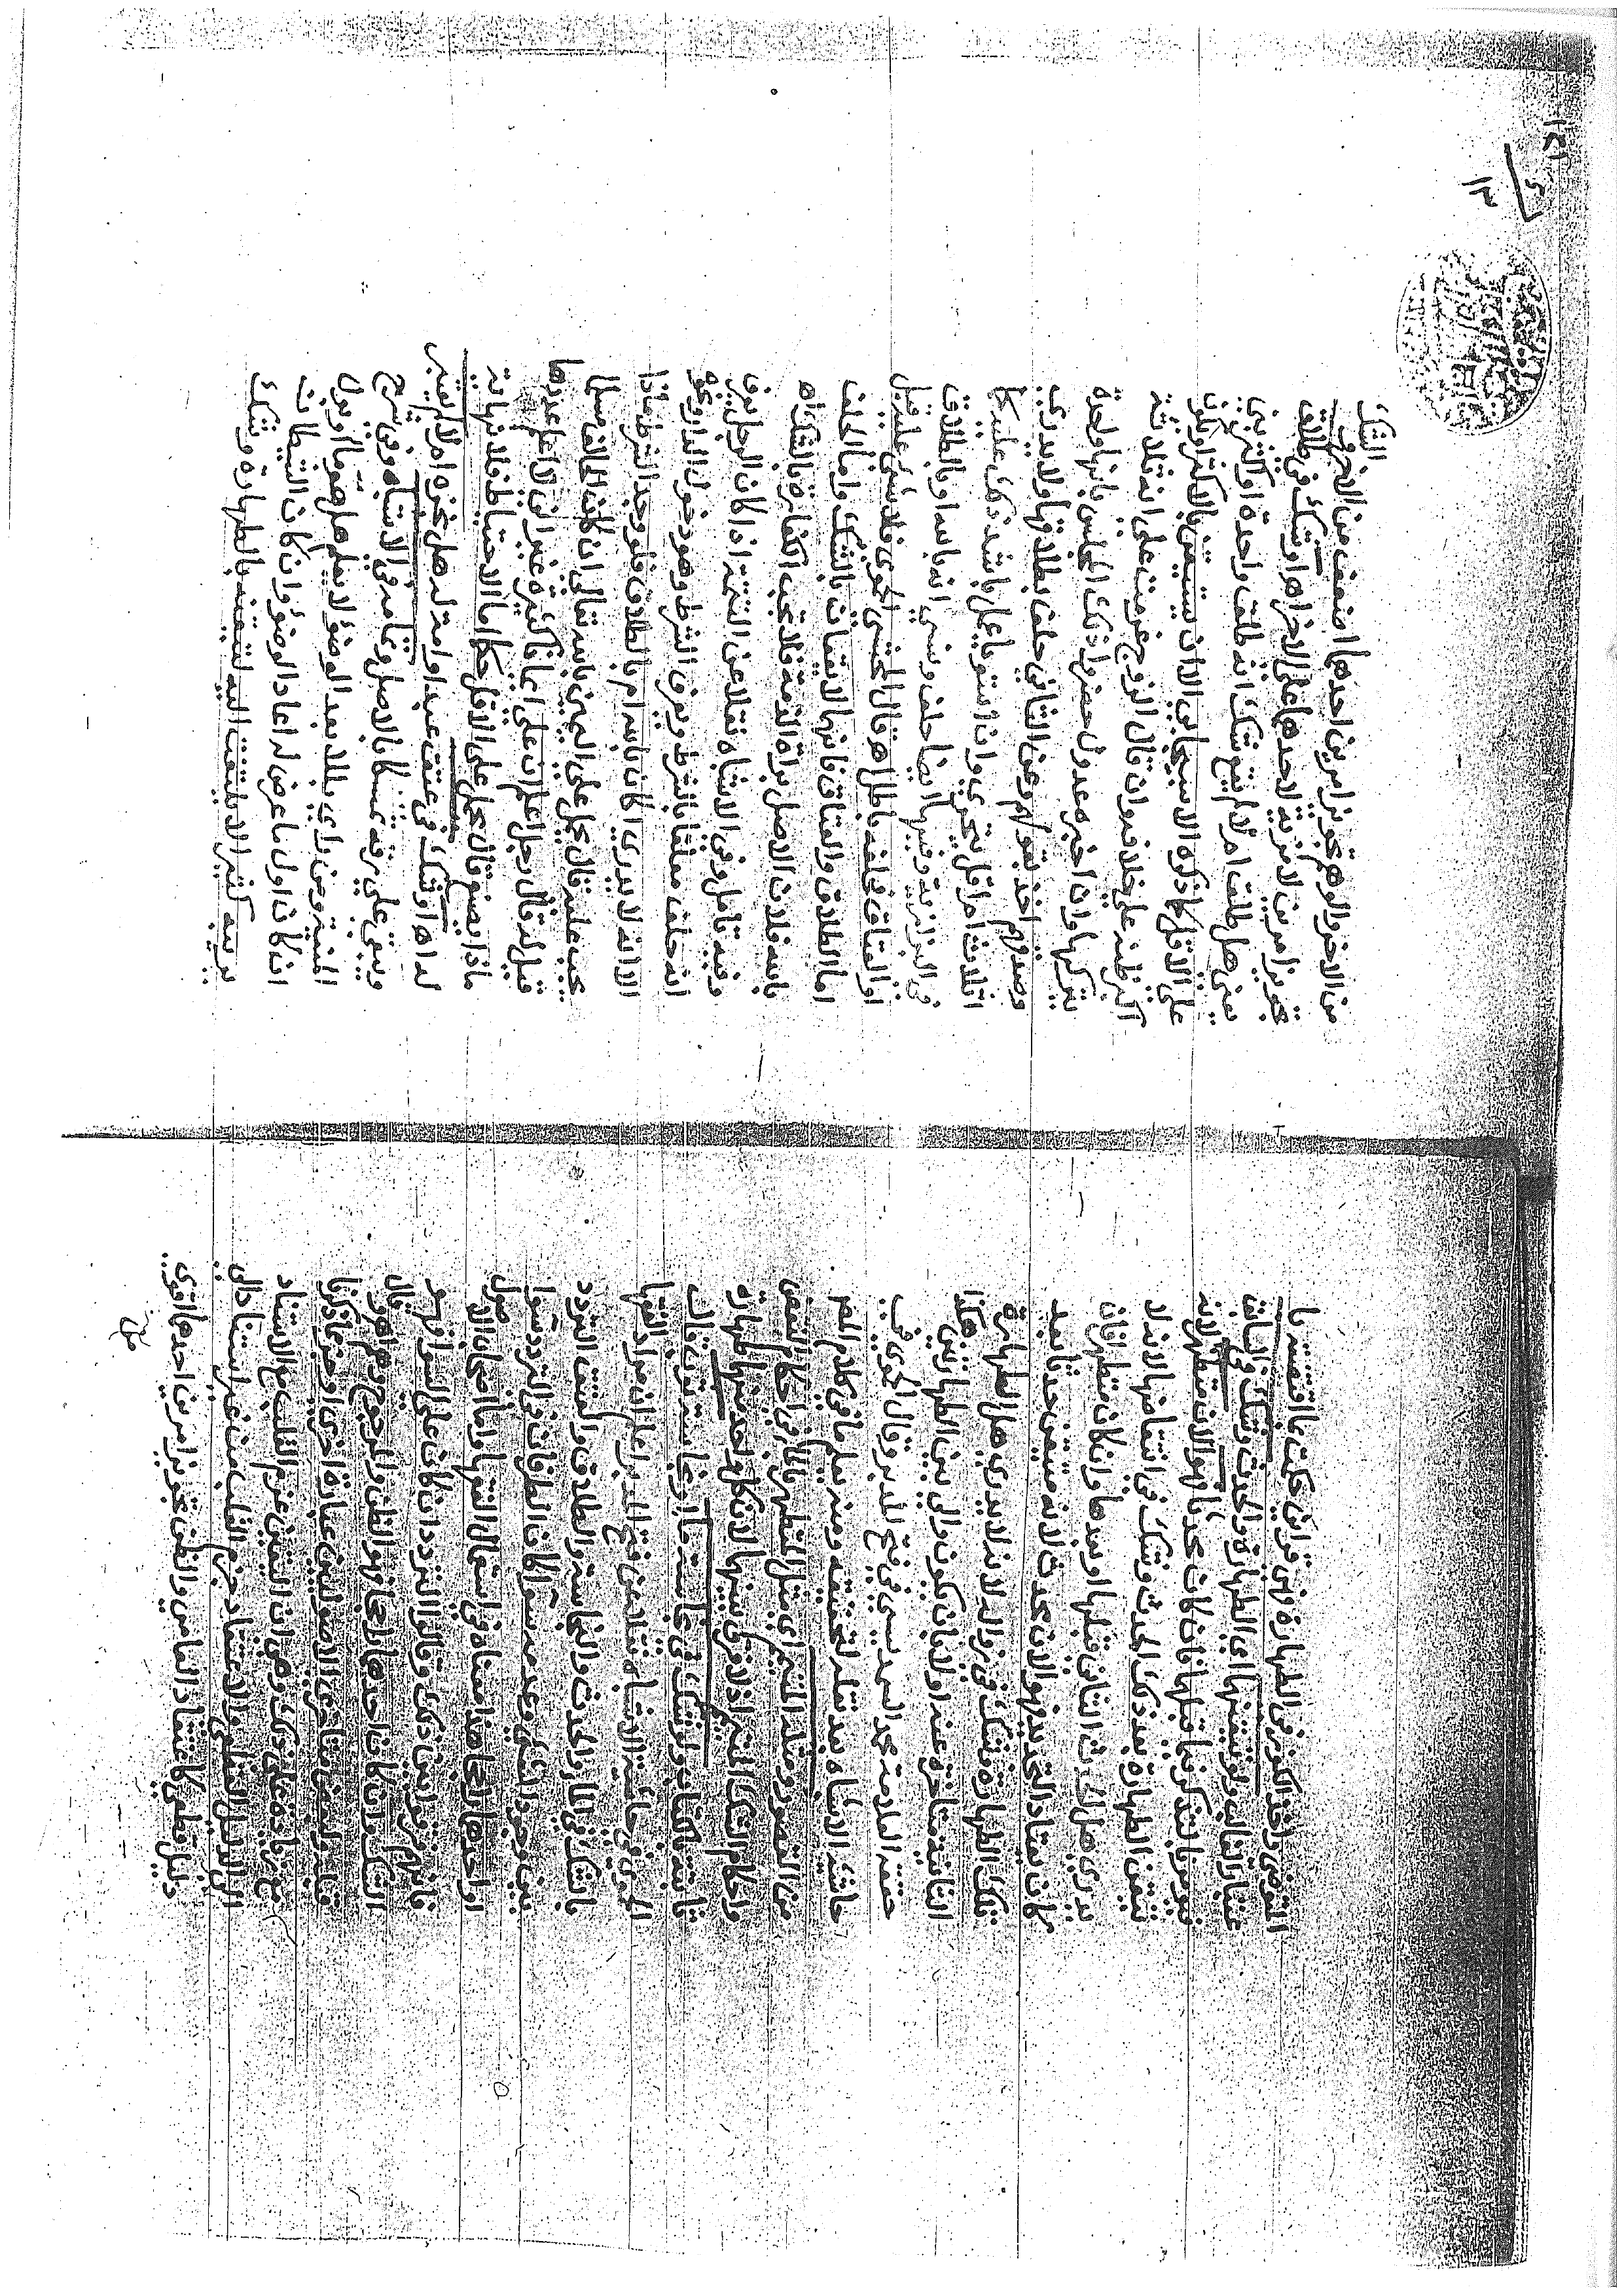 المتوضى واخذ الكوز من الطهارة وبين قرائن تحكمت بما اقتضته با
عتبار الغالب ولو تيقنهما اي الطهارة والحدث وشك في السابق
فيومر بالتذكر فيما قبلهما فان كان محدثا فهو الان متطهر لانه
تيقن الطهارة بعد ذلك الحدث وشك في انتقاضها لانه لا
يدري هل الحدث الثاني قبلها او بعدها وان كان متطهرا فان
كان يعتاد التجديد فهو الان محدث لانه متيقن حدثا بعد
تلك الطهارة وشك في زواله لانه لا يدري هل الطهارة
الثانية متاخرة عنه اولا بان يكون والى بين الطهارتين هكذا
حققه العلامة محمد السمديسي في فتح المدبر وقال الحموي في
حاشية الاشباه بعد نقله لتحقيقه ومنه يعلم ما في كلام المص
من القصور ومثله المتيمم اي مثل المتطهر بالماء في احكام النقض
واحكام الشك المتيمم اذ لا فرق بينهما لان كل واحد منهما طهارة
ثابتة بالكتاب ولو شك في نجاسة ماء او نجاسة ثوب قال
الحموي في حاشية الاشباه نقلا عن فتح المدبر اعلم ان مراد الفقها
بالشك في الماء والحدث والنجاسة والطلاق والعتق التردد
بين وجود الشئ وعدمه سواء كان الطرفان في التردد سوا
او احدهما راجحا هذا معناه في استعمال الفقها واما اصحاب الاصول
فانهم فرقوا بين ذلك وقالوا التردد ان كان على السوا فهو
الشك وان كان احدهما راجحا فهو الظن والمرجوح وهم اهـ وقال
قلت ولبعض متاخري الاصوليين عبارة اخرى اوجز مما ذكرنا
مع زيادة على ذلك وهي ان اليقين عزم القلب مع الاستناد
الى الدليل القطعي والاعتقاد جزم القلب من غير استناد الى
دليل قطعي كاعتقاد العامي والظن تجويز امرين احدهما اقوى
من
١٤١
١٣
من الاخر والوهم تجويز امرين احدهما اضعف من الاخر والشك
تجويز امرين لا مزية لاحدهما على الاخر اهـ او شك في طلاق
يعني هل طلق ام لا لم يقع شك انه طلق واحدة او اكثر بنى
على الاقل كما ذكره الاسبيجابي الا ان يستيقن بالاكثر او يكون
اكبر ظنه على خلافه وان قال الزوج عزمت على انه ثلاثة
يتركها وان اخبره عدول حضروا ذلك المجلس بانها واحدة
وصدقهم اخذ بقولهم وعن الثاني حلف بطلاقها ولا يدري
اثلاث ام اقل يتحرى وان استويا عمل باشد ذلك عليه كما
في البزازية وفيها ايضا حلف ونسي انه بالله او بالطلاق
او العتاق فحلفه باطل اهـ قال المحشي الحموي فلا شئ عليه قبل
اما الطلاق والعتاق فانهما لا يقعان بالشك واما الحلف
بالله فلان الاصل براة الذمة فلا تجب الكفارة بالشك اهـ
وفيه تامل وفي الاشباه نقلا عن اليتيمة اذا كان الرجل يعرف
انه حلف معلقا بالشرط ويعرف الشرط وهو دخول الدار ونحوه
الا انه لا يدري اكان بالله ام بالطلاق فلو وجد الشرط ماذا
يجب عليه قال يحمل على اليمين بالله تعالى ان كان الحالف مسلما
قيل له قال رجل اعلم ان علي ايمانا كثيرة غير اني لا اعلم عددها
ماذا يصنع قال يحمل على الاقل حكما اما الاحتياط فلا نهاية
له اهـ او شك في عتق عبد او امة له هل نجزه ام لا لم يعتبر
ويبقى على رقه تمسكا بالاصل وتمامه في الاشباه وفي شرح
المنية ومن راى بللا بعد الوضوء لا يعلم هل هو ماء او بول
ان كان اول ما عرض له اعاد الوضوء وان كان الشيطان
يريبه كثيرا لا يلتفت اليه لتيقنه بالطهارة وشك